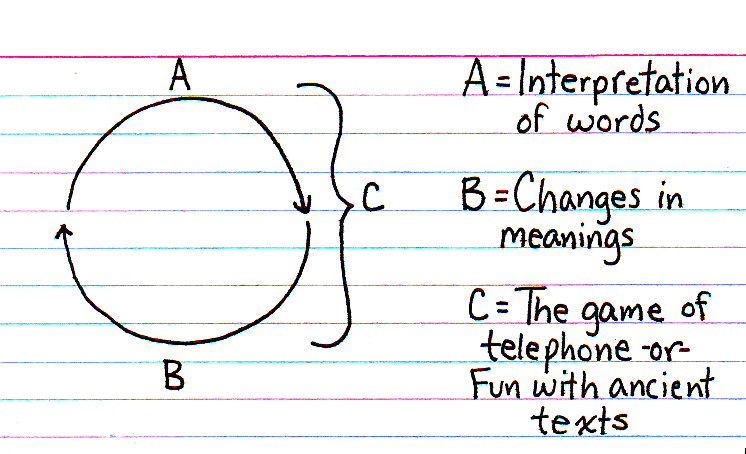 A
C
B
A = Interpretation
of words
B = Changes in
meanings
C = The game of
telephone -or-
Fun with ancient
texts